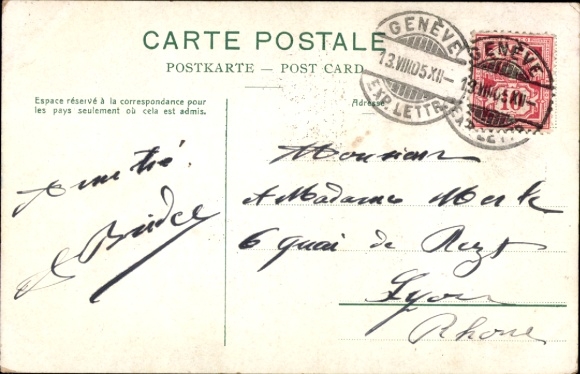 CARTE POSTALE
POSTKARTE — POST CARD
Espace réservé à la correspondance pour
les pays seulement où cela est admis.
Adresse
GENÈVE
13.VIII05.XII–
EXP. LETTR.
GENÈVE
13.VIII05.XII–
EXP. LETTR.
10
Monsieur
et Madame Merle
6 quai de Retz
Lyon
Rhone
Amitié.